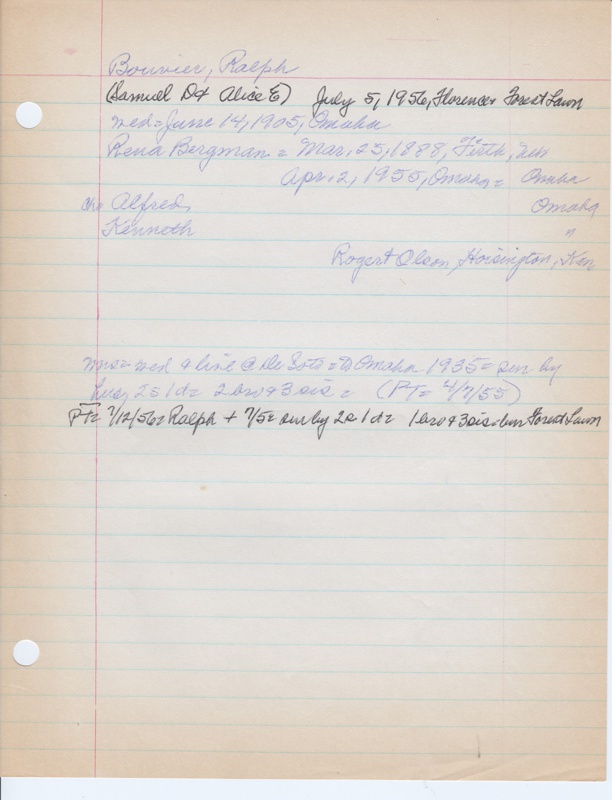 Bouvier, Ralph
(Samuel D + Alice E) July 5, 1956, Florence + Forest Lawn
wed = June 14, 1905, Omaha
Rena Bergman = Mar. 25, 1888, Firth, Neb
Apr. 2, 1955, Omaha = Omaha
ch = Alfred, Omaha
Kenneth "
Rogert Olson, Hoisington, Kan
wed & live @ De Soto = to Omaha 1935 = sur by
hus, 2s 1d = 2 bro & 3 sis = (PT = 4/7/55)
PT = 7/12/56 = Ralph + 7/5 = sur by 2s 1d = 1 bro & 3 sis = bur Forest Lawn